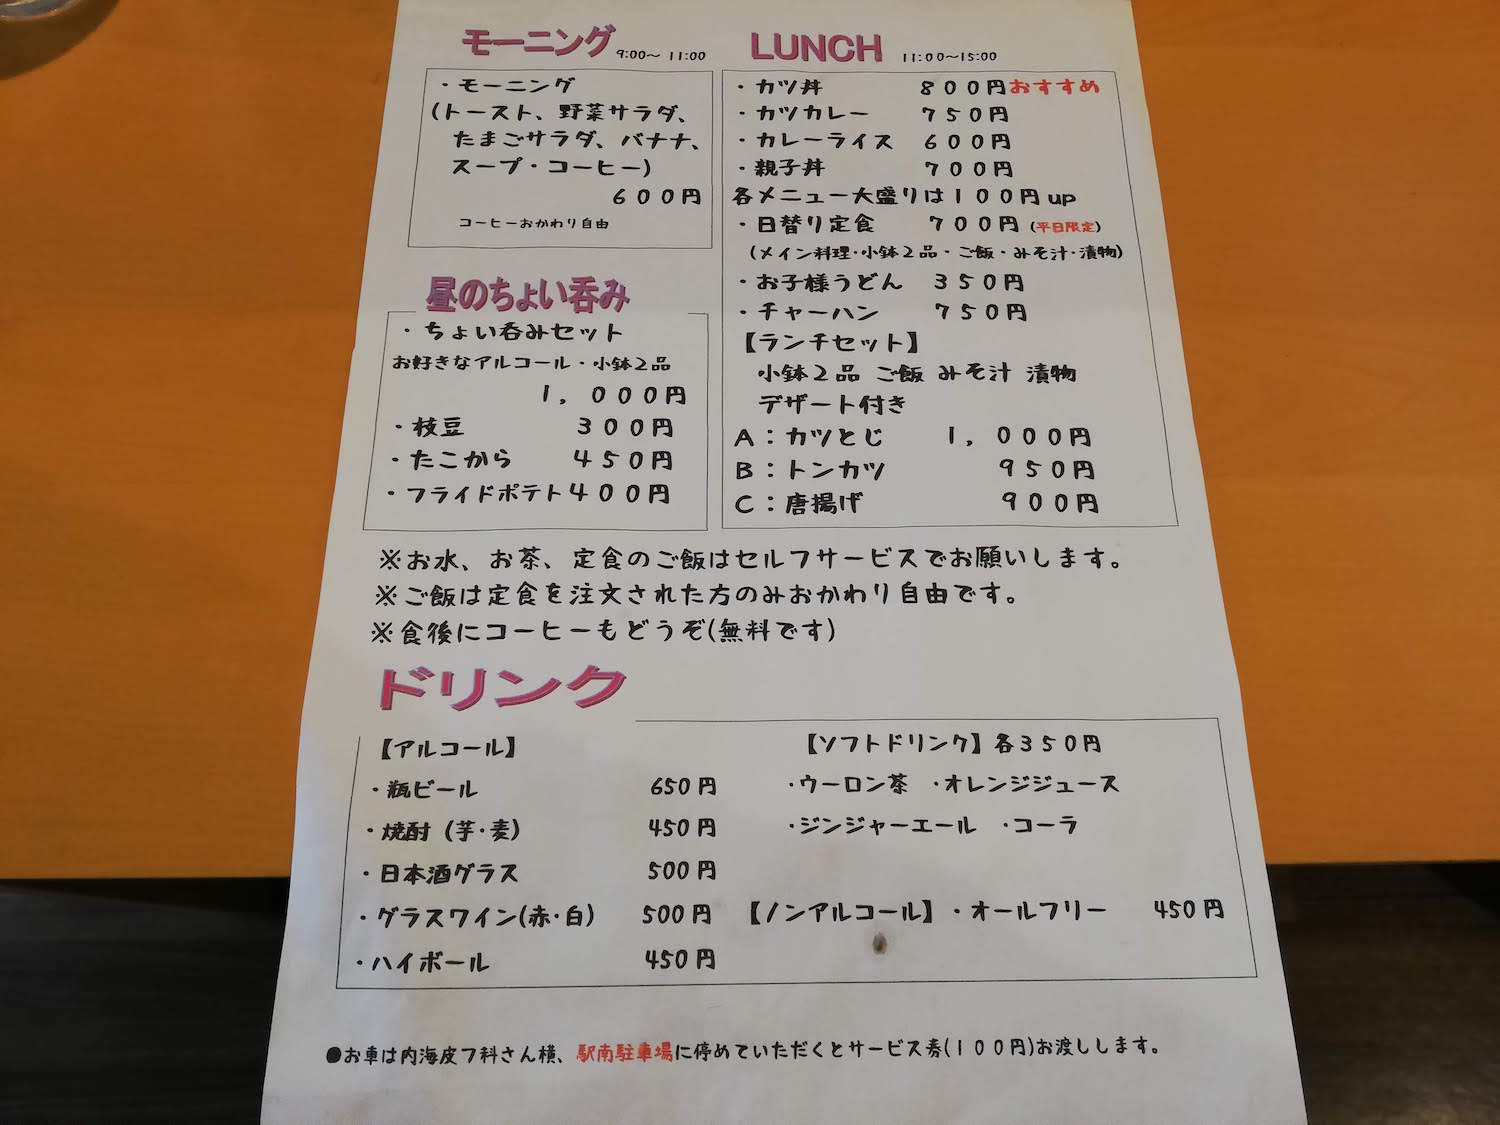 モーニング 9:00～ 11:00
・モーニング
(トースト、野菜サラダ、
たまごサラダ、バナナ、
スープ・コーヒー)
６００円
コーヒーおかわり自由
昼のちょい呑み
・ちょい呑みセット
お好きなアルコール・小鉢２品
１，０００円
・枝豆 ３００円
・たこから ４５０円
・フライドポテト４００円
LUNCH 11:00～15:00
・カツ丼 ８００円おすすめ
・カツカレー ７５０円
・カレーライス ６００円
・親子丼 ７００円
各メニュー大盛りは１００円up
・日替り定食 ７００円 (平日限定)
(メイン料理・小鉢２品・ご飯・みそ汁・漬物)
・お子様うどん ３５０円
・チャーハン ７５０円
【ランチセット】
小鉢２品 ご飯 みそ汁 漬物
デザート付き
A：カツとじ １，０００円
B：トンカツ ９５０円
C：唐揚げ ９００円
※お水、お茶、定食のご飯はセルフサービスでお願いします。
※ご飯は定食を注文された方のみおかわり自由です。
※食後にコーヒーもどうぞ(無料です)
ドリンク
【アルコール】
・瓶ビール 650円
・焼酎（芋・麦） 450円
・日本酒グラス 500円
・グラスワイン(赤・白) 500円
・ハイボール 450円
【ソフトドリンク】各３５０円
・ウーロン茶 ・オレンジジュース
・ジンジャーエール ・コーラ
【ノンアルコール】・オールフリー 450円
●お車は内海皮フ科さん横、駅南駐車場に停めていただくとサービス券(１００円)お渡しします。